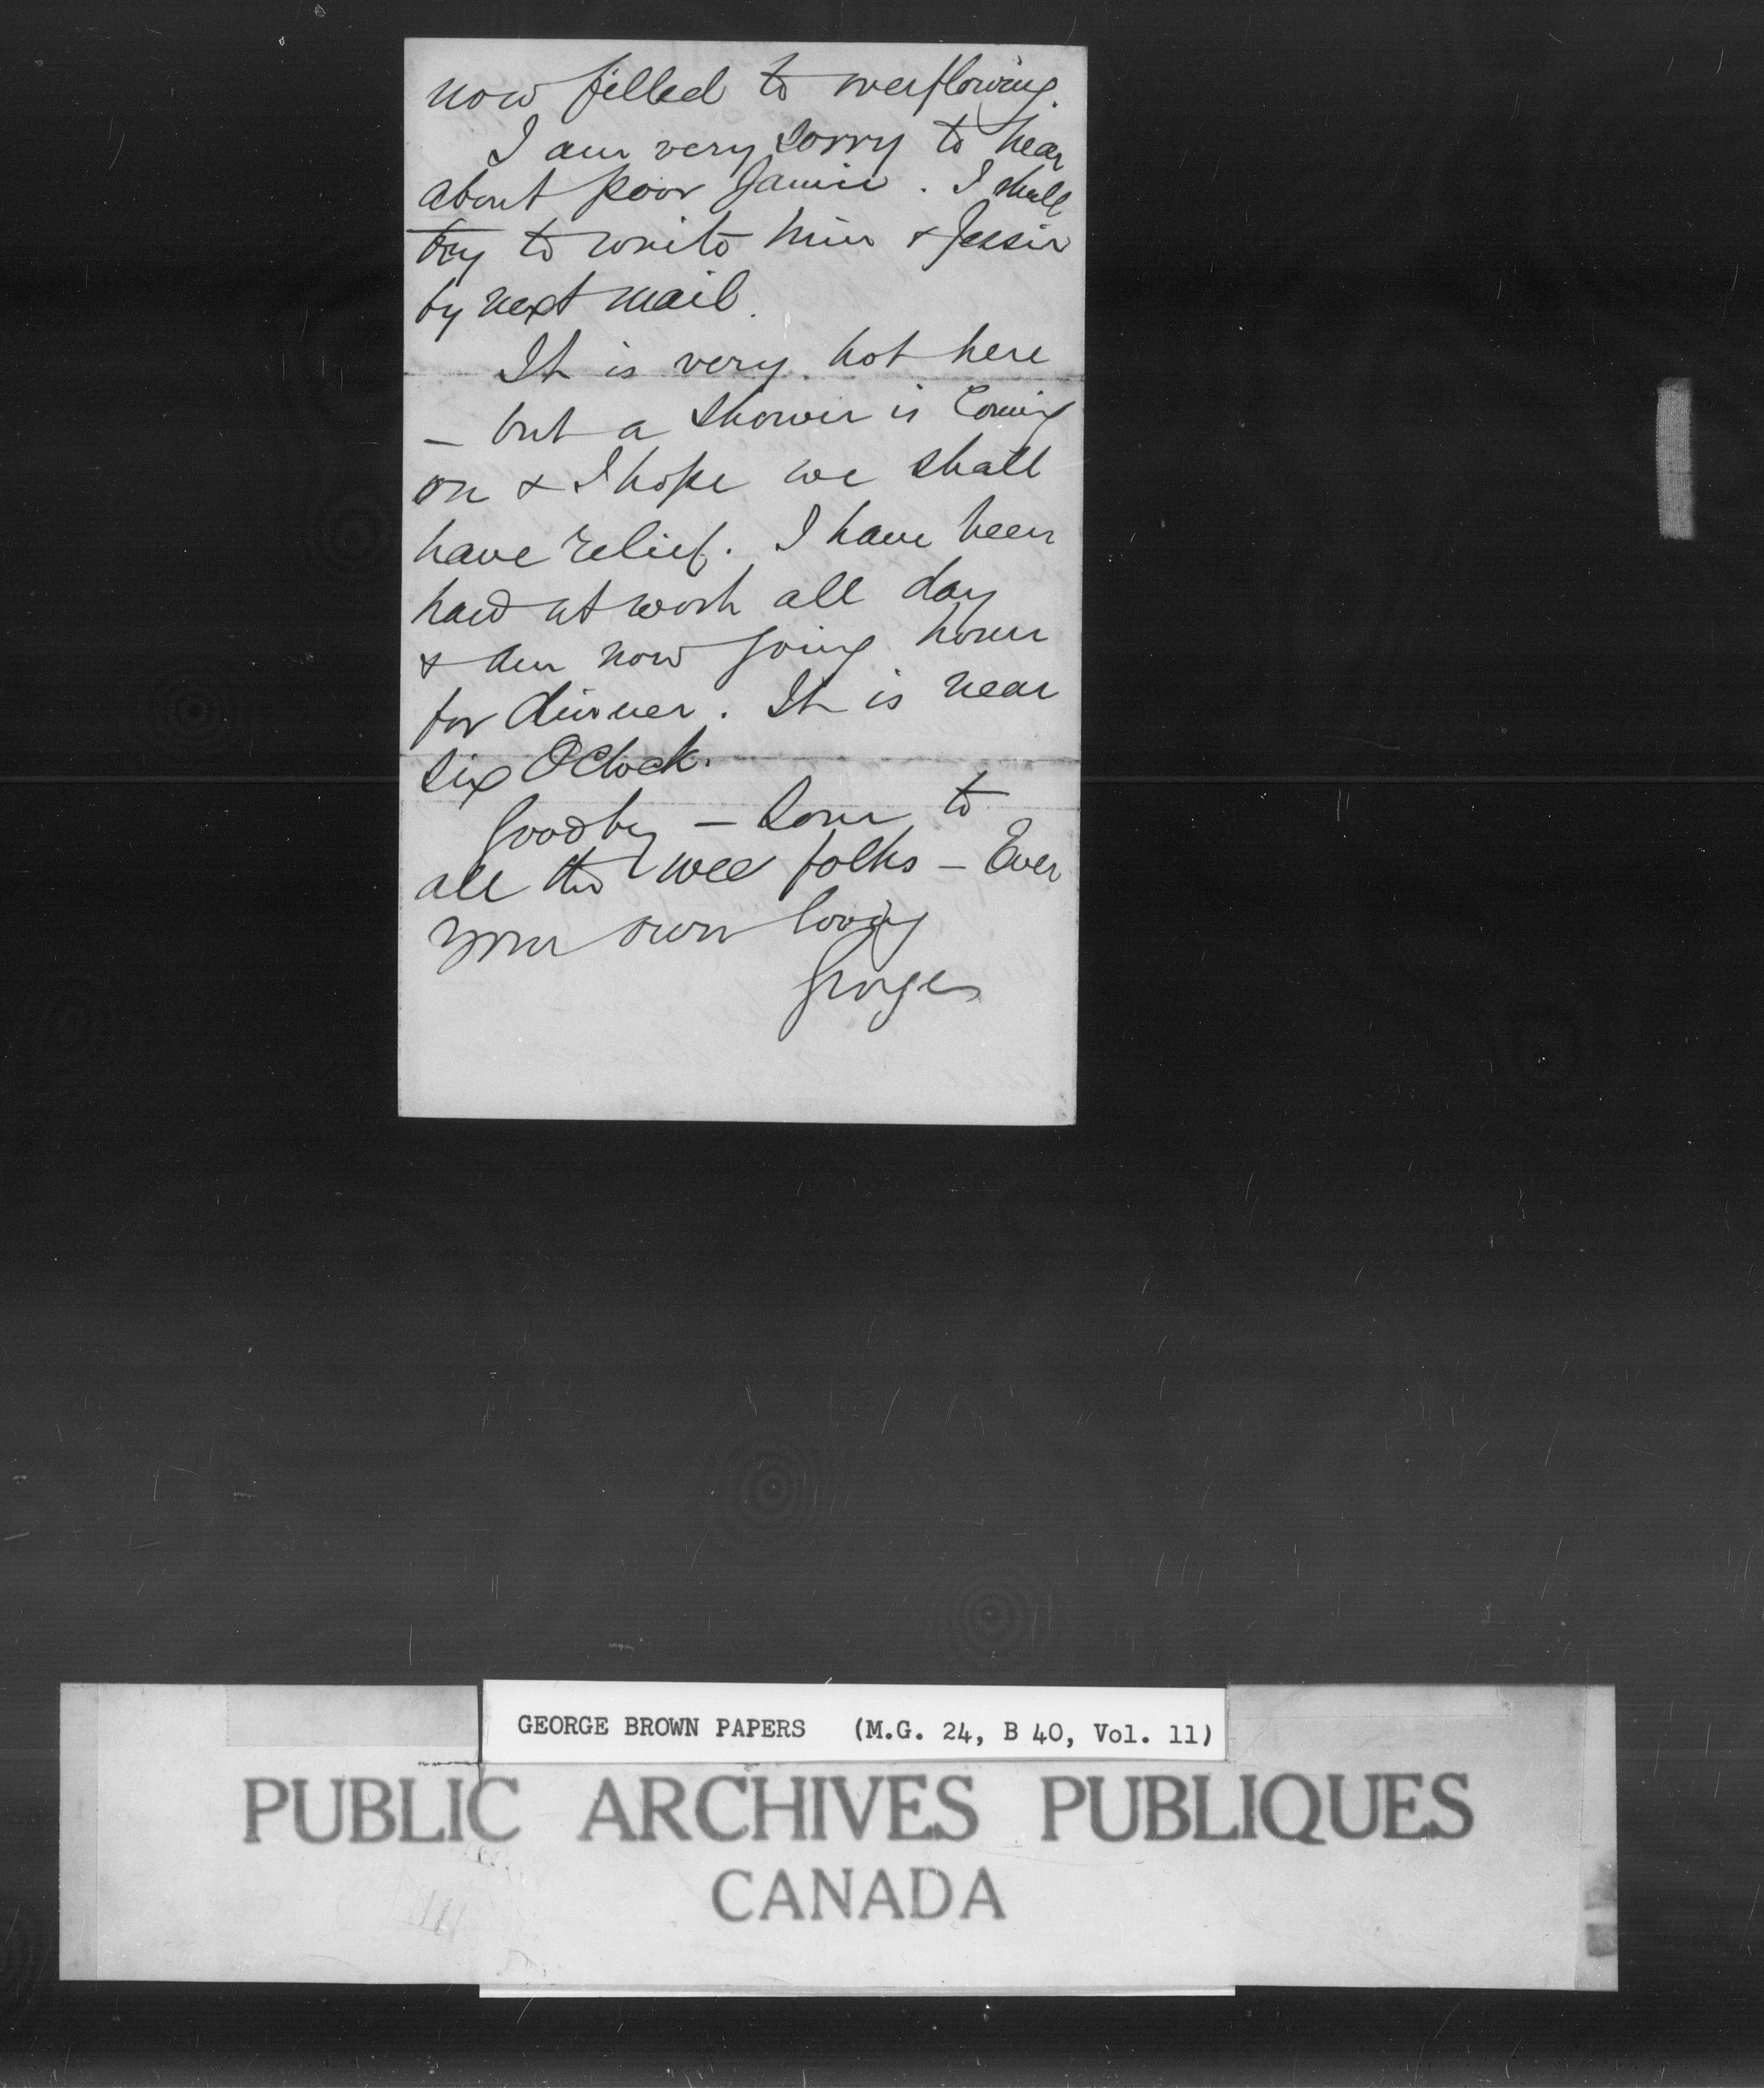 now filled to overflowing.
I am very sorry to hear
about poor Jamie. I shall
try to write him & Jessie
by next mail.
It is very hot here
– but a shower is coming
on & I hope we shall
have relief. I have been
hard at work all day
& am now going home
for dinner. It is near
six O'Clock.
Goodby – Love to
all the wee folks – Ever
your own loving
George
GEORGE BROWN PAPERS (M.G. 24, B 40, Vol. 11)
PUBLIC ARCHIVES PUBLIQUES
CANADA